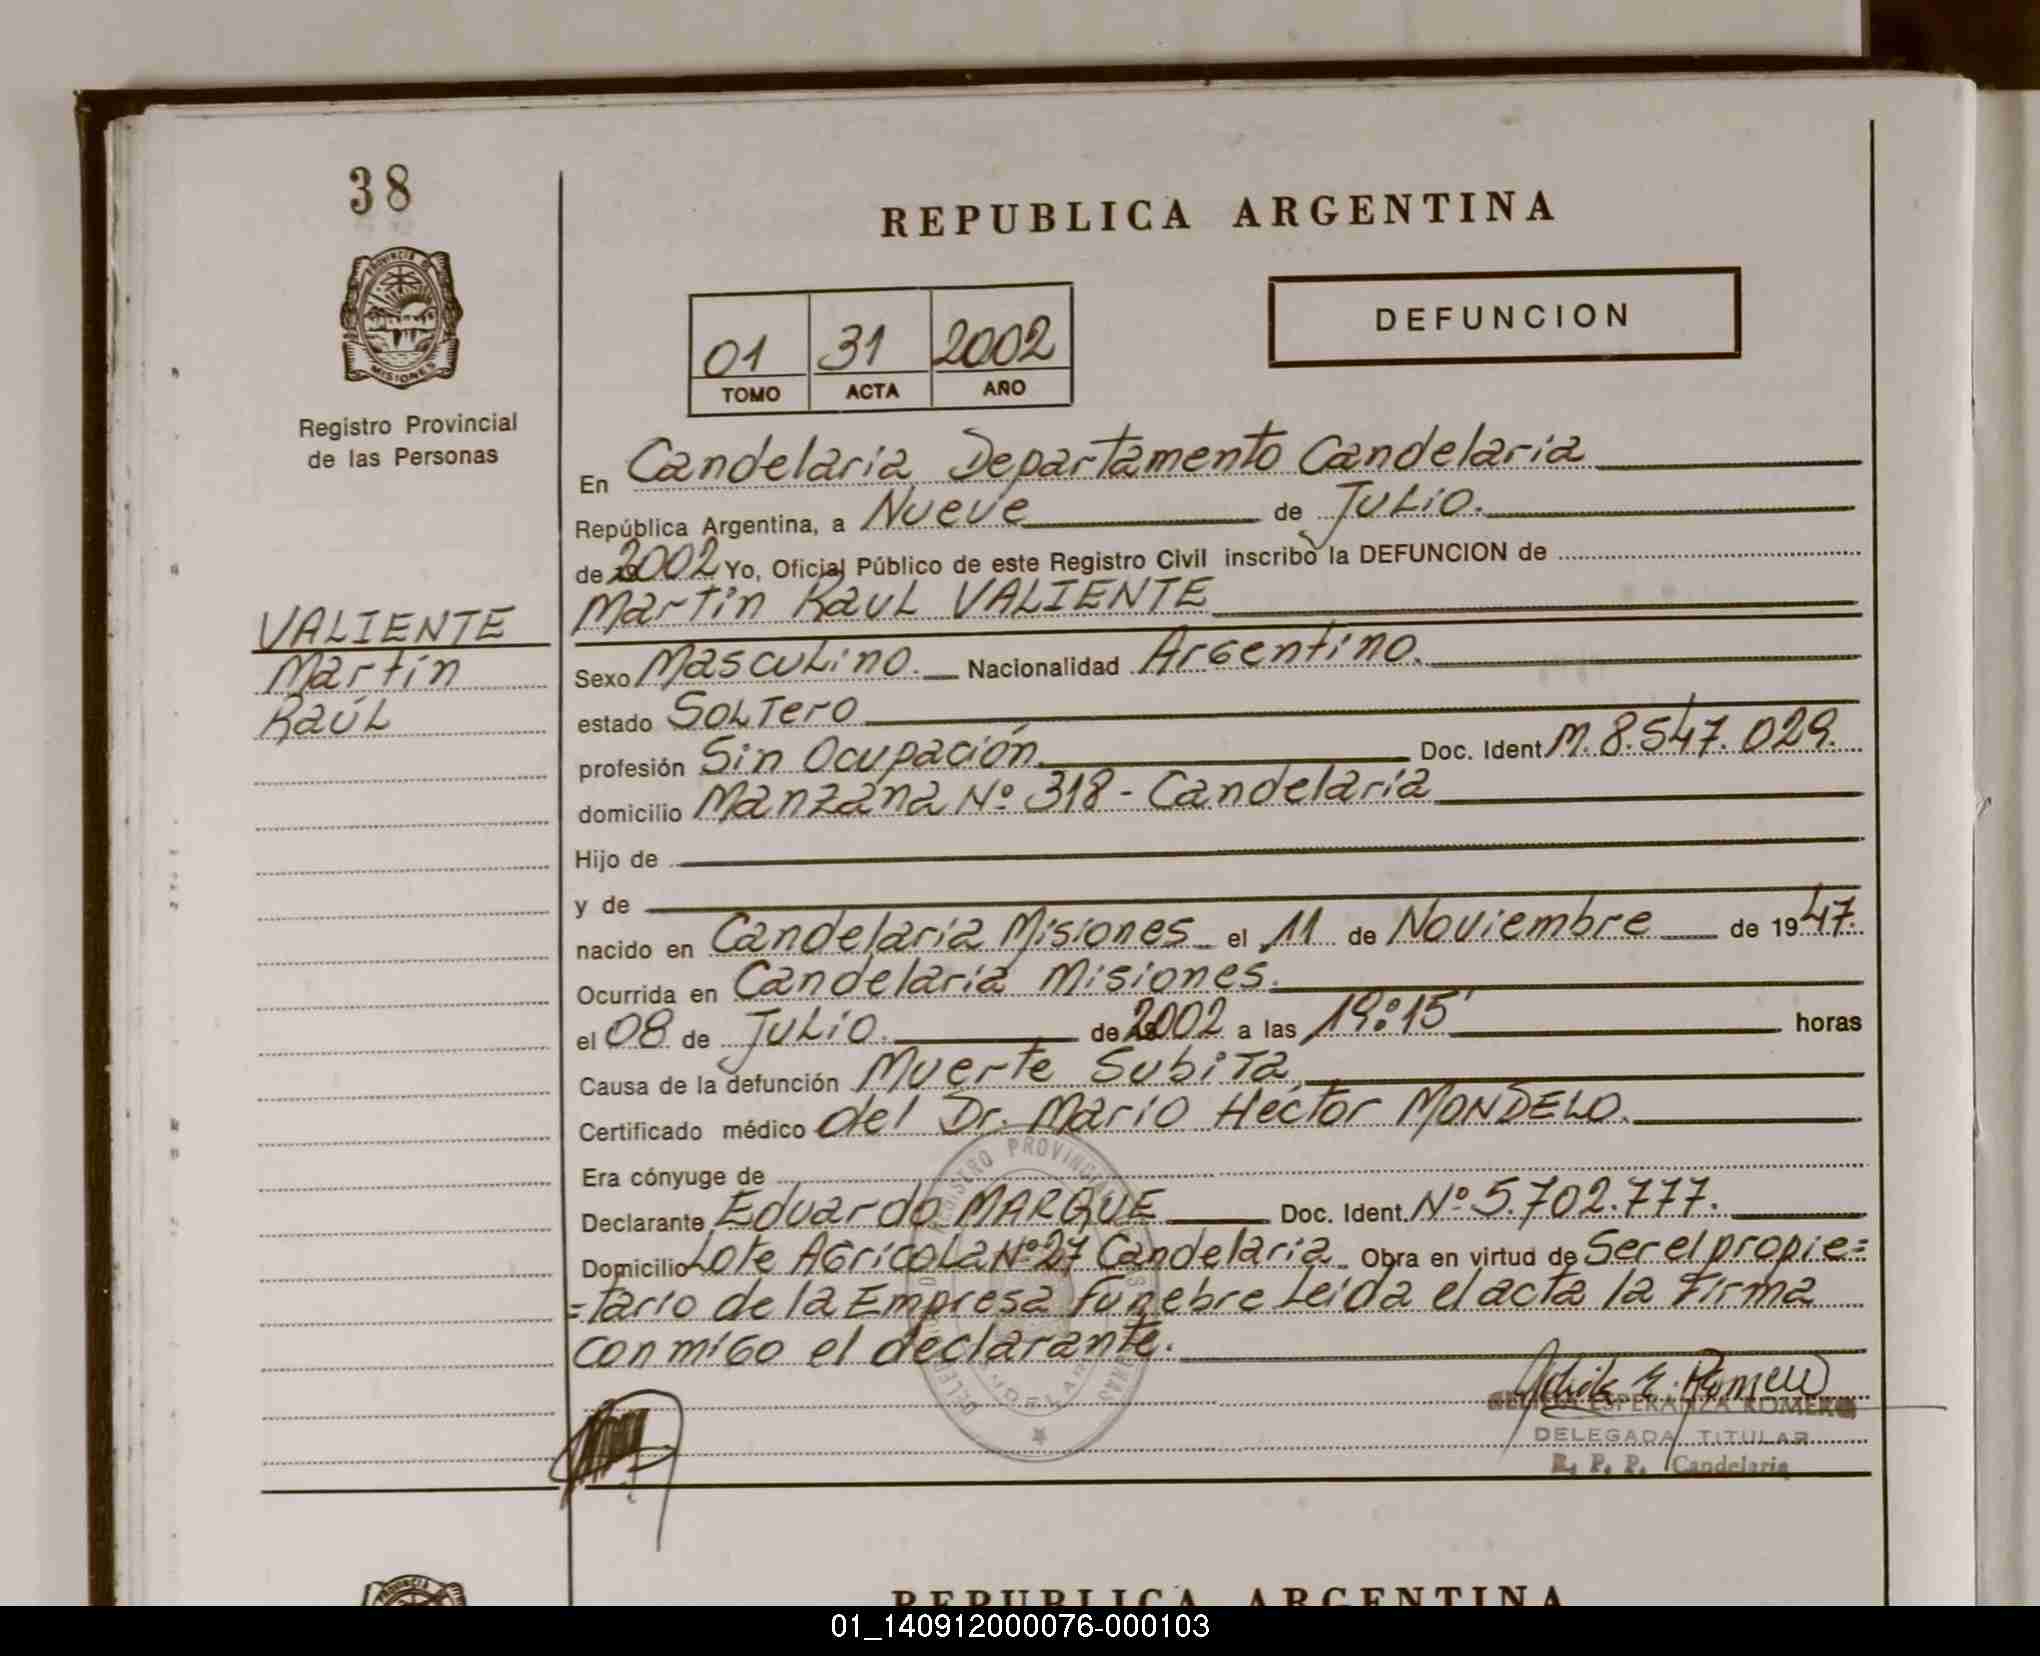 38
PROVINCIA DE
MISIONES
Registro Provincial
de las Personas
VALIENTE
Martín
Raúl
REPUBLICA ARGENTINA
01 31 2002
TOMO ACTA AÑO
DEFUNCION
En Candelaria Departamento Candelaria
República Argentina, a Nueve de Julio.
de 2002 Yo, Oficial Público de este Registro Civil inscribo la DEFUNCION de
Martín Raul VALIENTE
Sexo Masculino. Nacionalidad Argentino.
estado Soltero
profesión Sin Ocupación. Doc. Ident. M. 8.547.029.
domicilio Manzana Nº 318 - Candelaria
Hijo de
y de
nacido en Candelaria Misiones el 11 de Noviembre de 1947.
Ocurrida en Candelaria Misiones.
el 08 de Julio. de 2002 a las 19:15' horas
Causa de la defunción Muerte Subita
Certificado médico del Dr. Mario Hector MONDELO.
Era cónyuge de
Declarante Eduardo MARQUE Doc. Ident. Nº 5.702.777.
Domicilio Lote Agricola Nº 27 Candelaria Obra en virtud de Ser el propie=
=tario de la Empresa Funebre Leida el acta la Firma
conmigo el declarante.
ESPERANZA ROMERO
DELEGADA TITULAR
R. P. P. Candelaria
REPUBLICA ARGENTINA
01_140912000076-000103